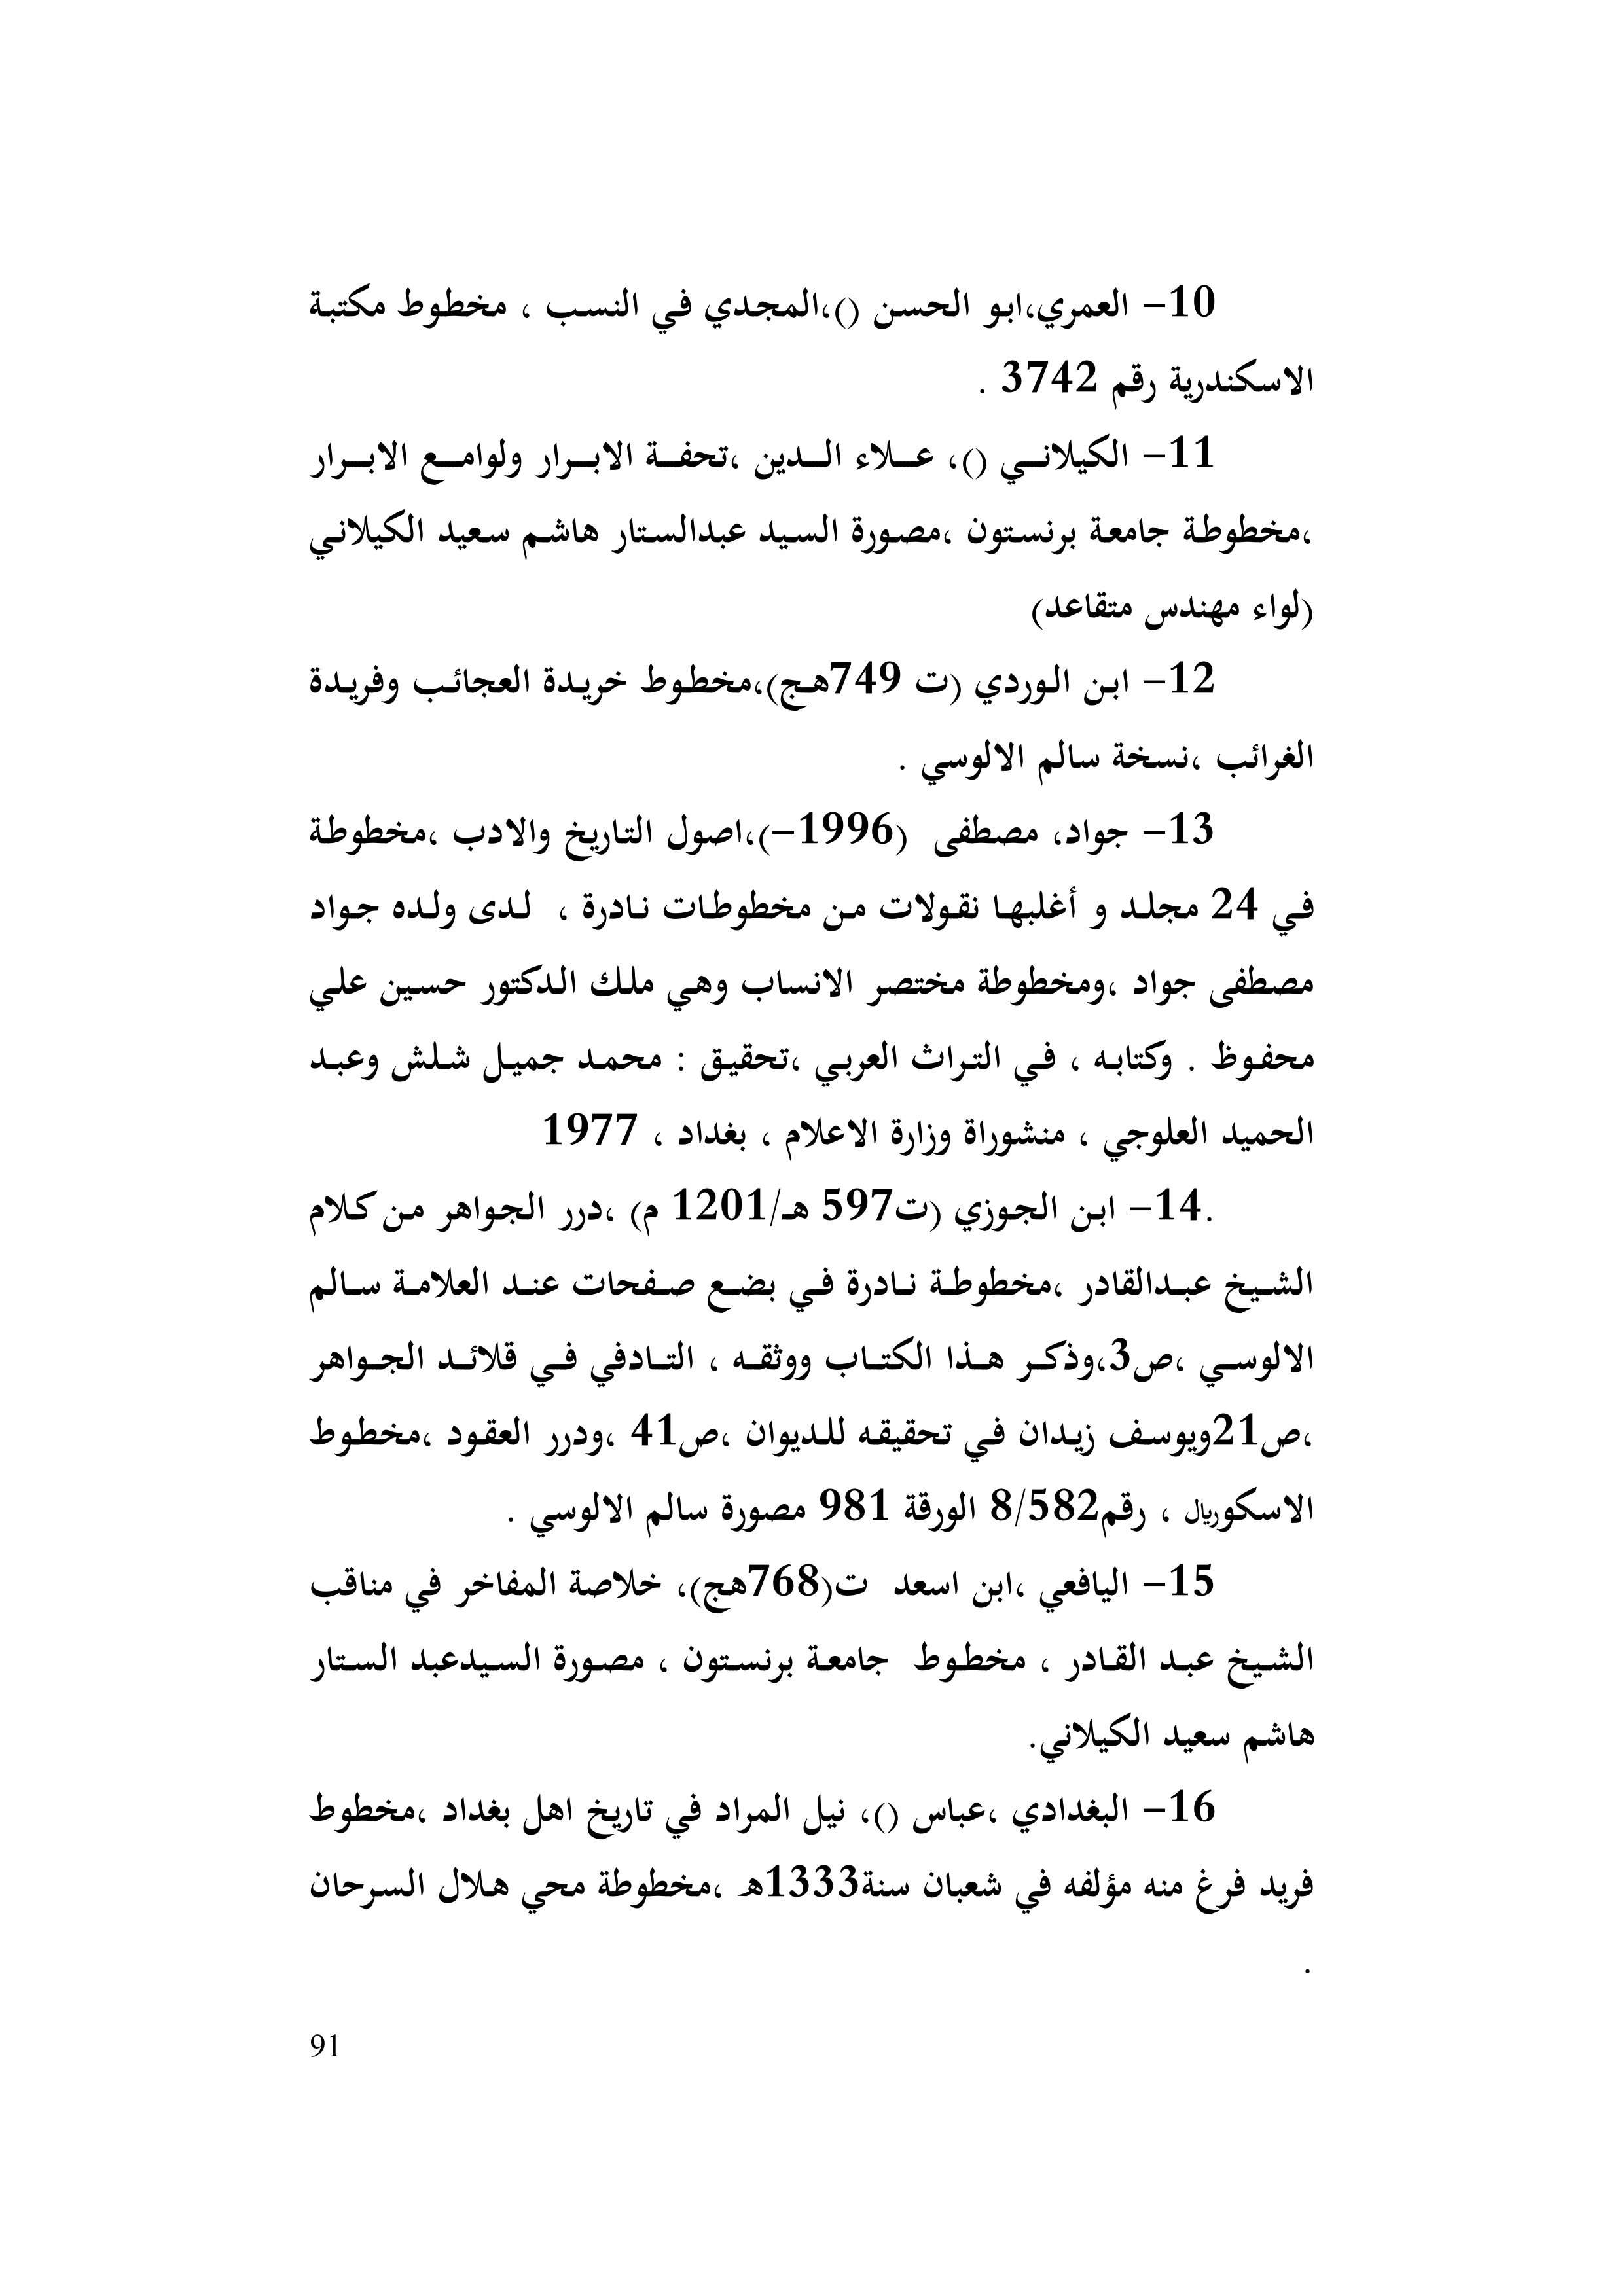 10- العمري،ابو الحسن ()،المجدي في النسب ، مخطوط مكتبة
الاسكندرية رقم 3742 .
11- الكيلاني ()، علاء الدين ،تحفة الابرار ولوامع الابرار
،مخطوطة جامعة برنستون ،مصورة السيد عبدالستار هاشم سعيد الكيلاني
(لواء مهندس متقاعد)
12- ابن الوردي (ت 749هج)،مخطوط خريدة العجائب وفريدة
الغرائب ،نسخة سالم الالوسي .
13- جواد، مصطفى (1996-)،اصول التاريخ والادب ،مخطوطة
في 24 مجلد و أغلبها نقولات من مخطوطات نادرة ، لدى ولده جواد
مصطفى جواد ،ومخطوطة مختصر الانساب وهي ملك الدكتور حسين علي
محفوظ . وكتابه ، في التراث العربي ،تحقيق : محمد جميل شلش وعبد
الحميد العلوجي ، منشوراة وزارة الاعلام ، بغداد ، 1977
.14- ابن الجوزي (ت597 هـ/1201 م) ،درر الجواهر من كلام
الشيخ عبدالقادر ،مخطوطة نادرة في بضع صفحات عند العلامة سالم
الالوسي ،ص3،وذكر هذا الكتاب ووثقه ، التادفي في قلائد الجواهر
،ص21ويوسف زيدان في تحقيقه للديوان ،ص41 ،ودرر العقود ،مخطوط
الاسكوريال ، رقم8/582 الورقة 981 مصورة سالم الالوسي .
15- اليافعي ،ابن اسعد ت(768هج)، خلاصة المفاخر في مناقب
الشيخ عبد القادر ، مخطوط جامعة برنستون ، مصورة السيدعبد الستار
هاشم سعيد الكيلاني.
16- البغدادي ،عباس ()، نيل المراد في تاريخ اهل بغداد ،مخطوط
فريد فرغ منه مؤلفه في شعبان سنة1333هـ ،مخطوطة محي هلال السرحان
.
91